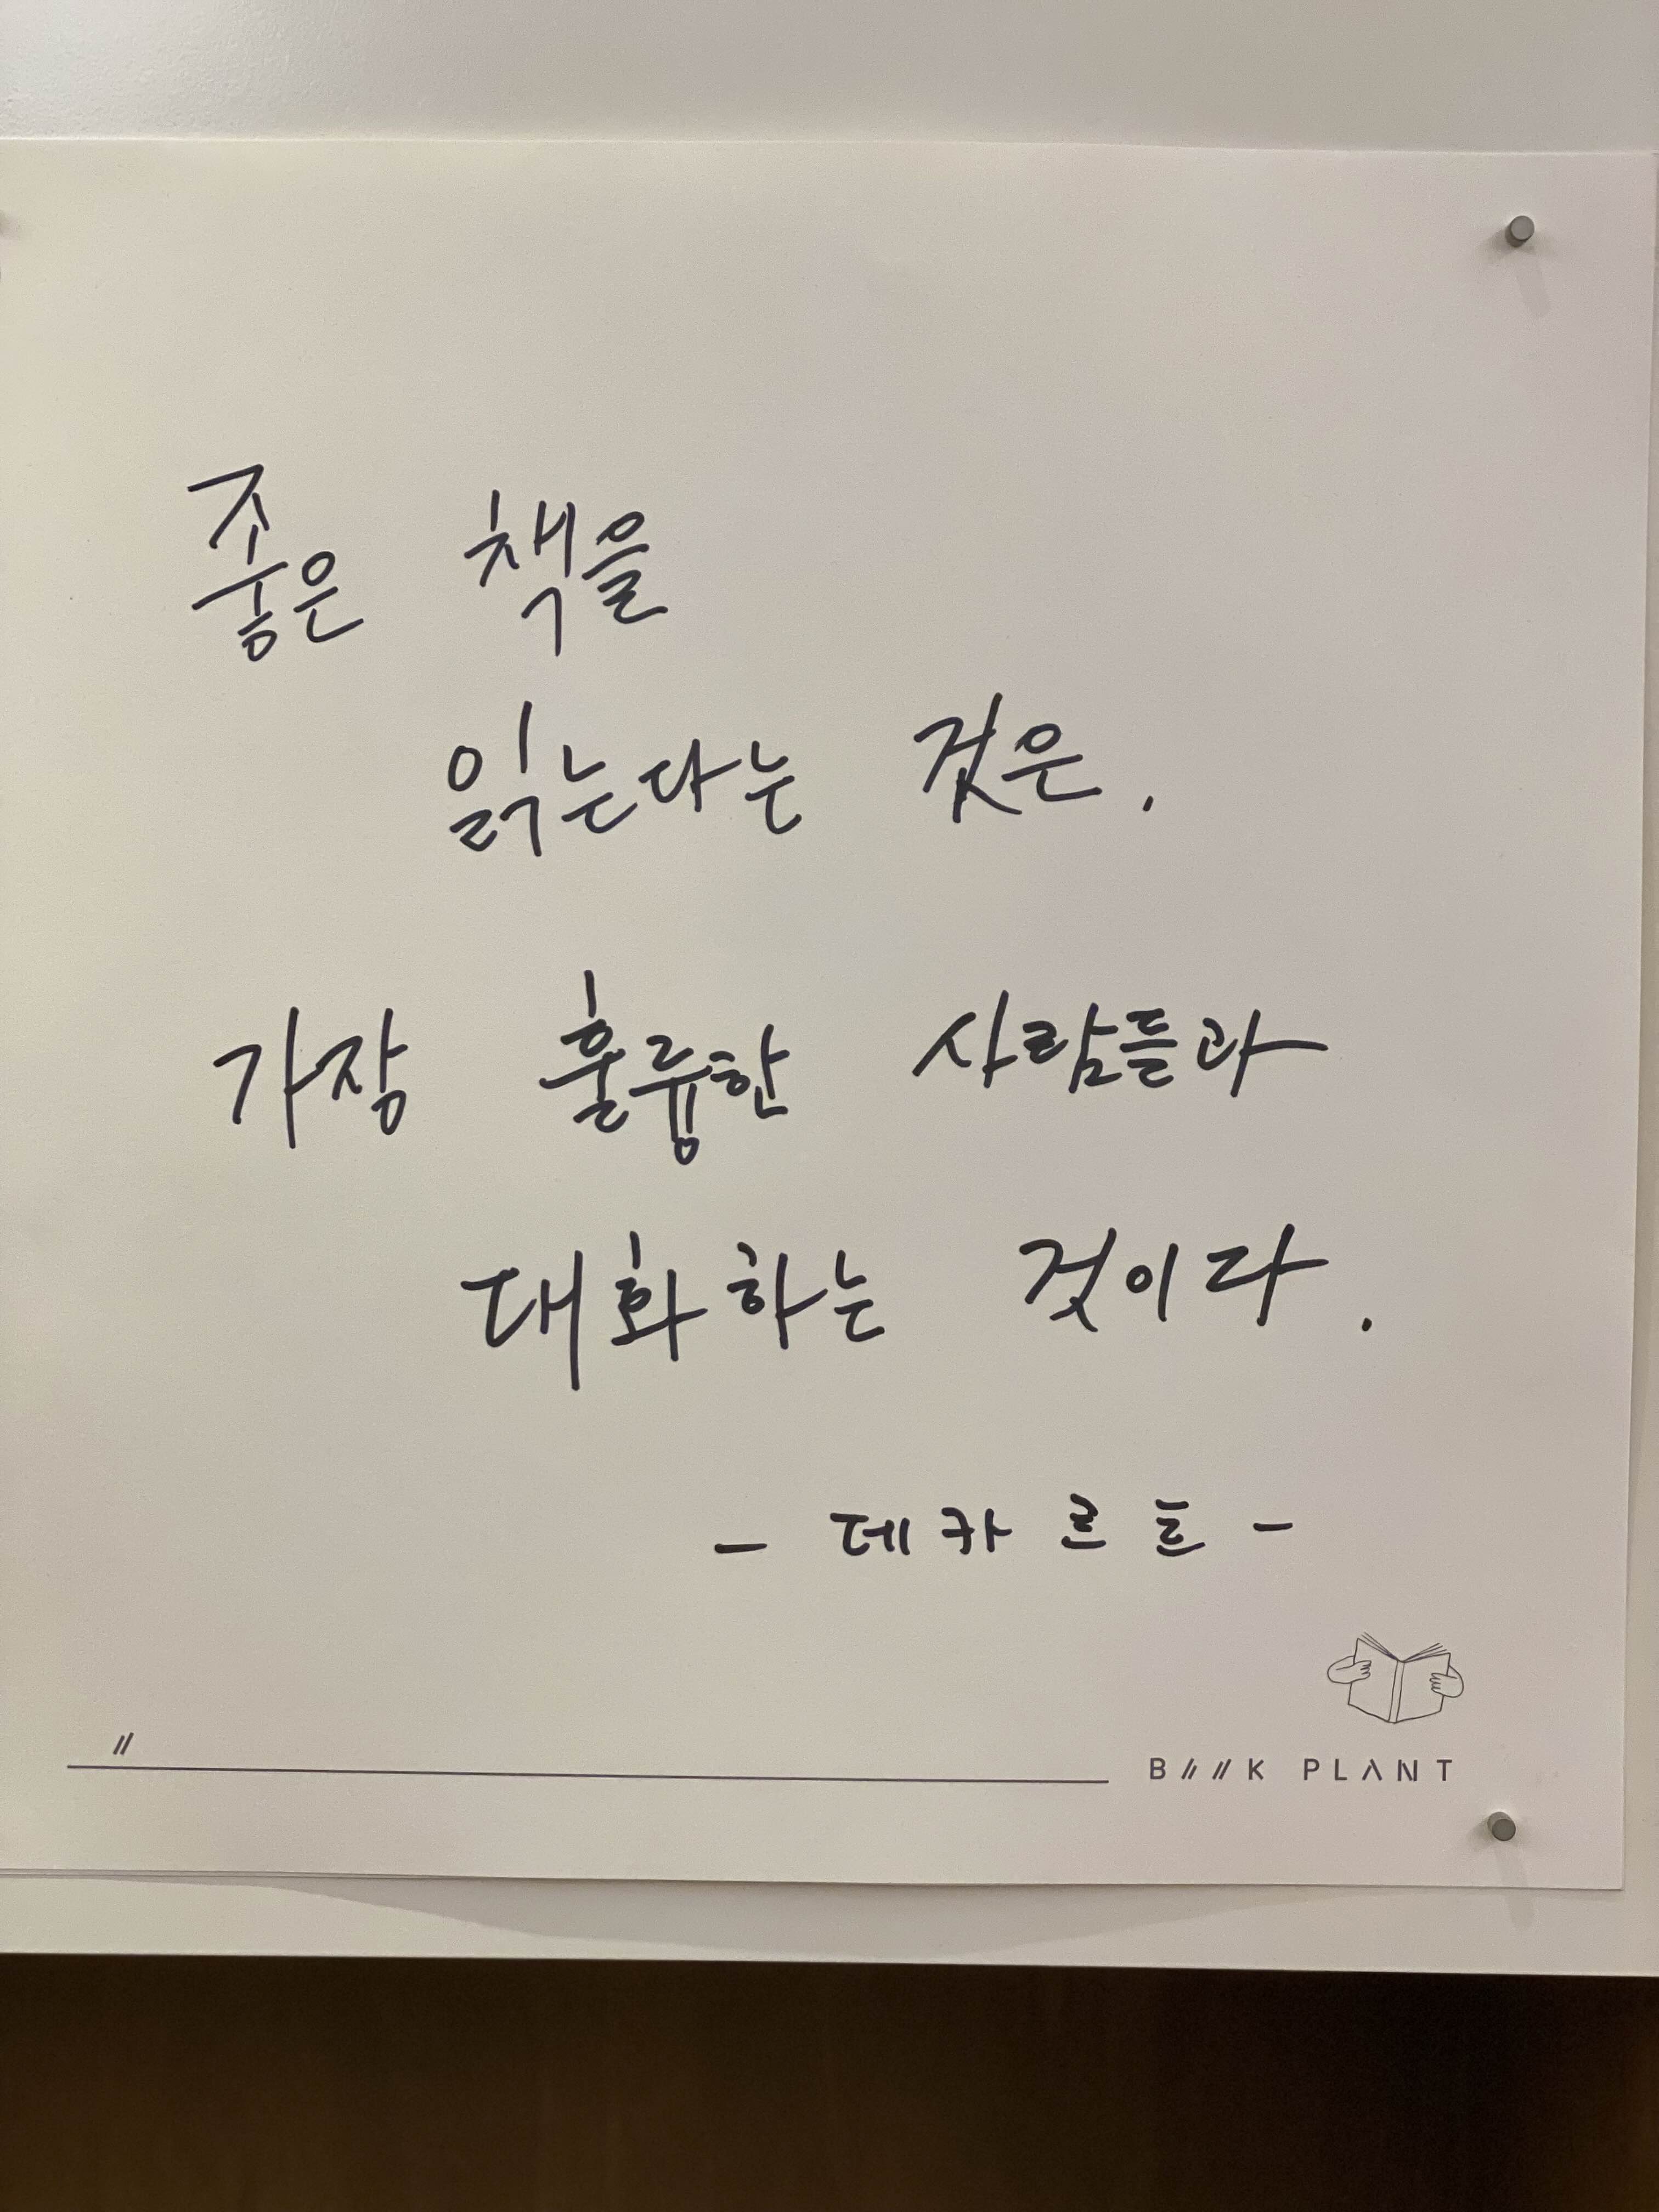 좋은 책을
읽는다는 것은.
가장 훌륭한 사람들과
대화하는 것이다.
- 데카르트 -
BOOK PLANT